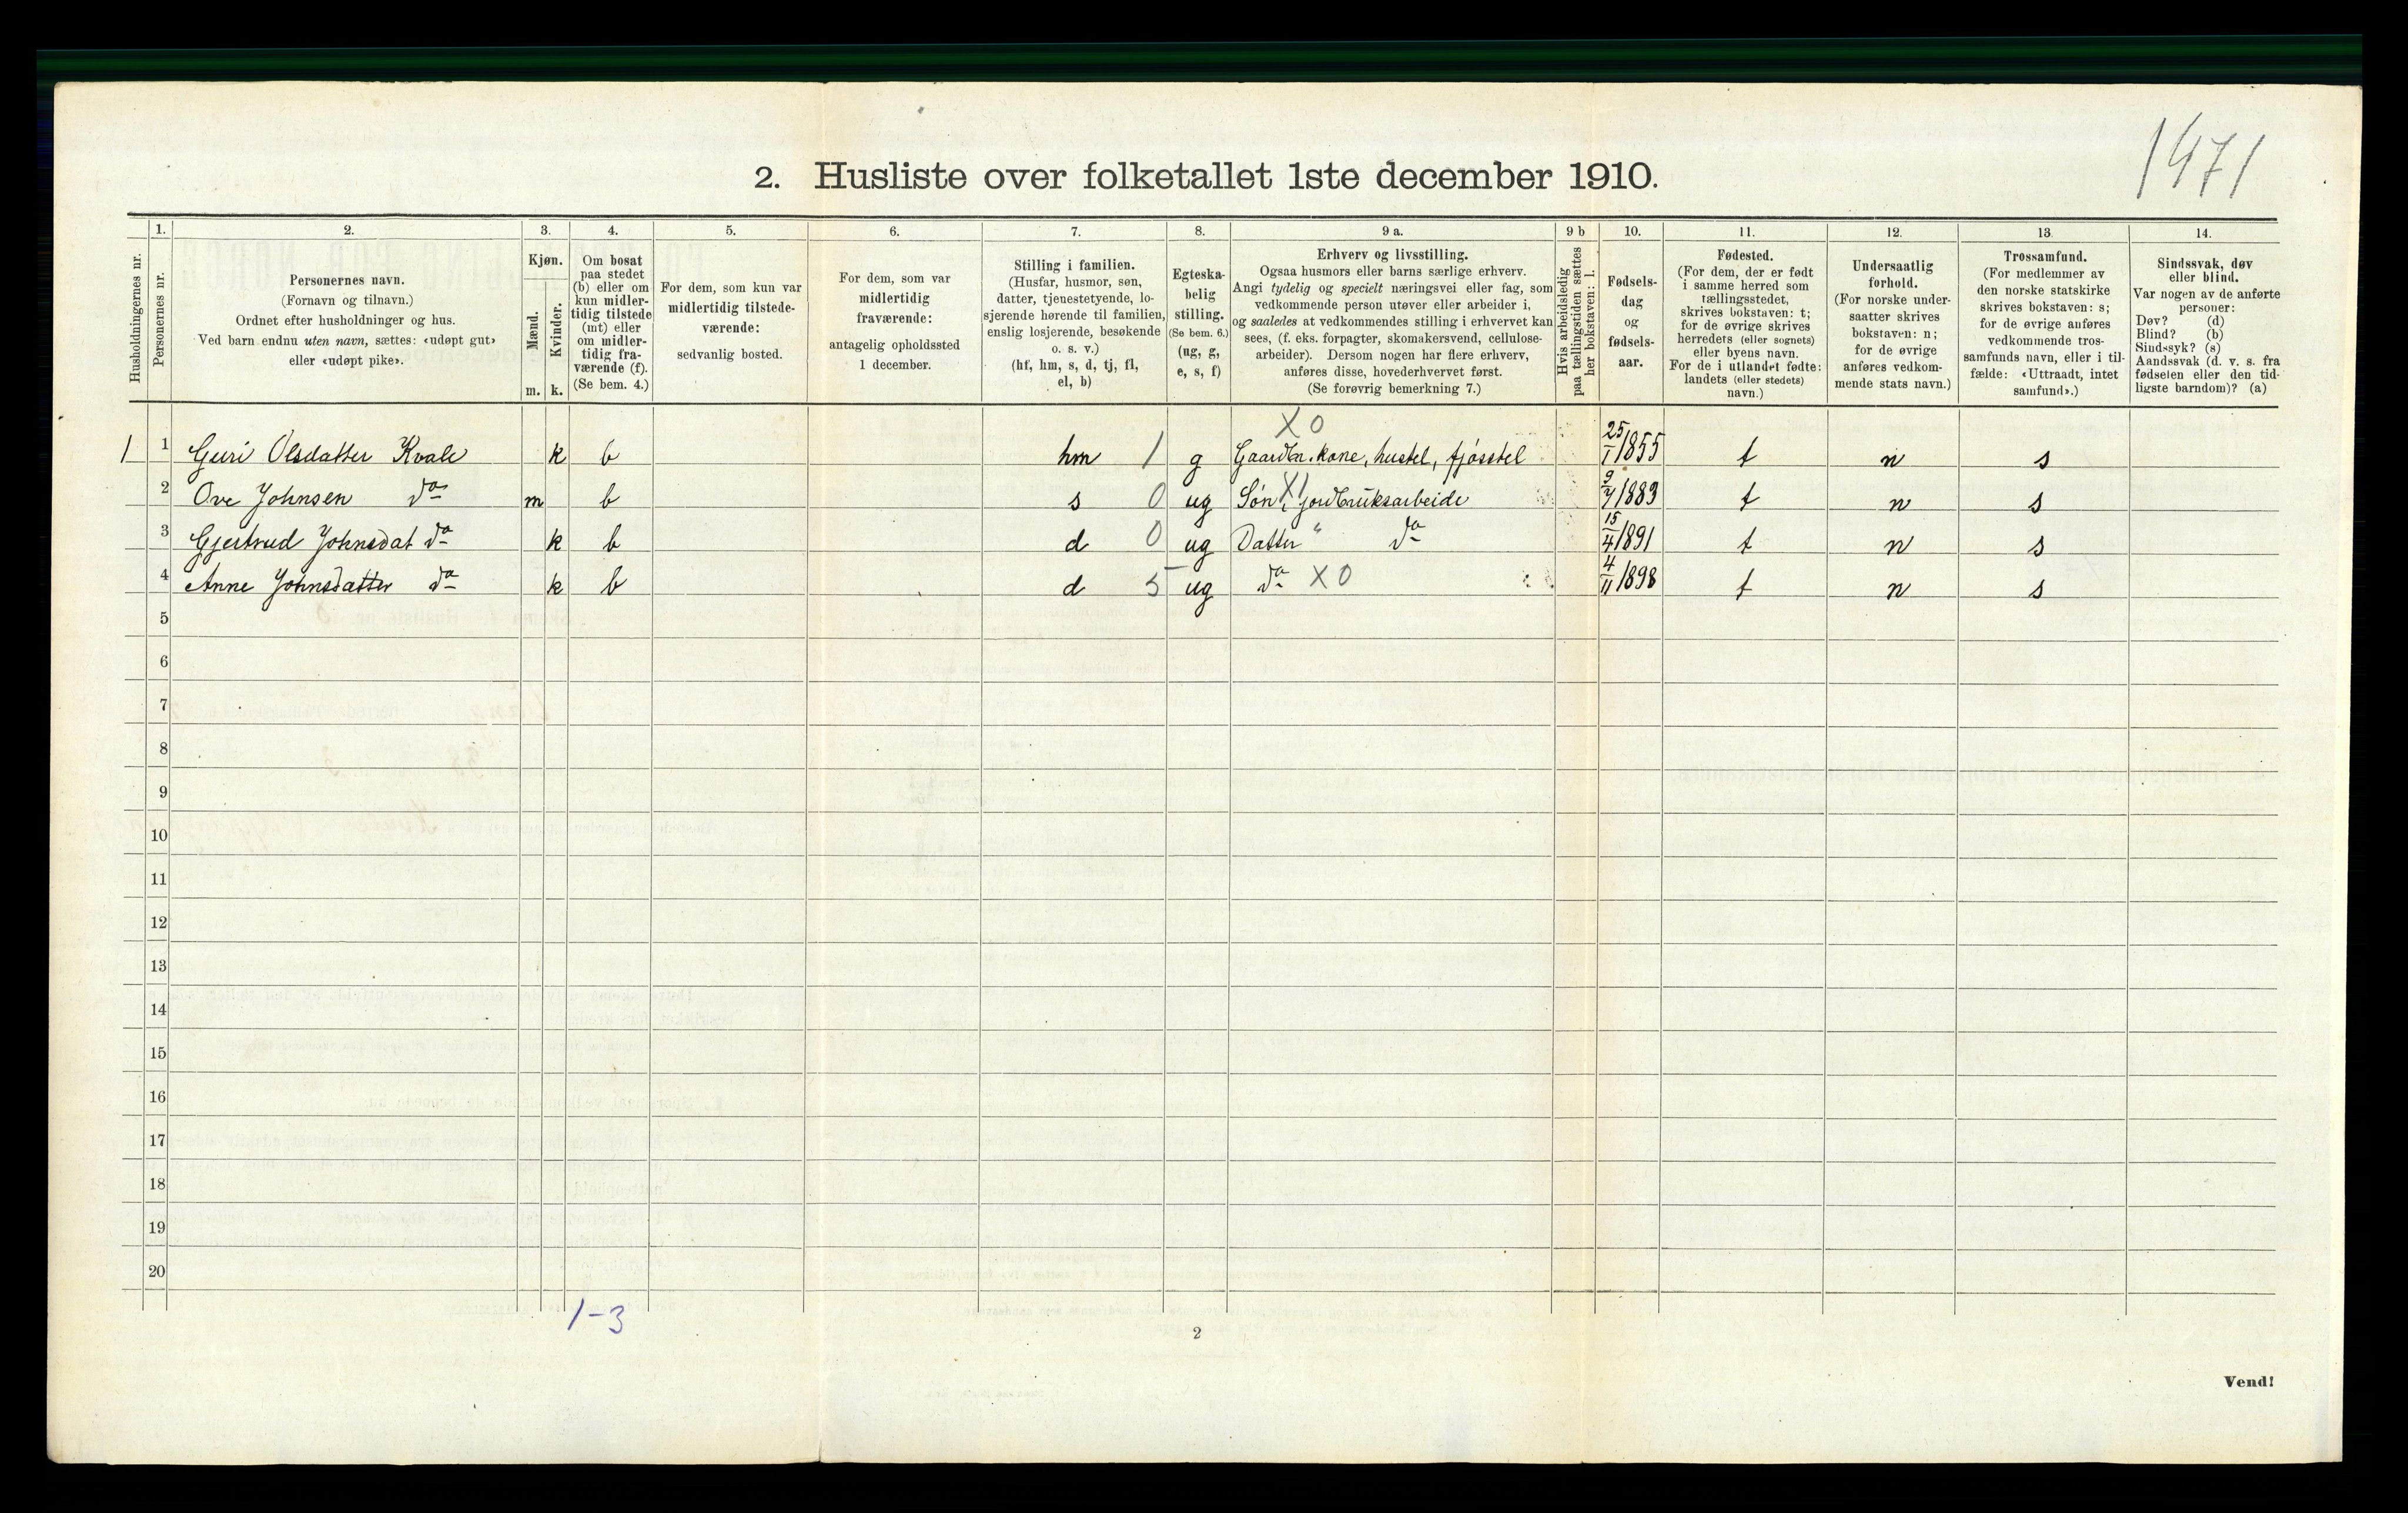 1471
2. Husliste over folketallet 1ste december 1910.
1. 2. 3. 4. 5. 6. 7. 8. 9 a. 9 b 10. 11. 12. 13. 14.
Husholdningernes nr.
Personernes nr.
Personernes navn.
(Fornavn og tilnavn.)
Ordnet efter husholdninger og hus.
Ved barn endnu uten navn, sættes: «udøpt gut»
eller «udøpt pike».
Kjøn.
Mænd.
Kvinder.
m. k.
Om bosat
paa stedet
(b) eller om
kun midler-
tidig tilstede
(mt) eller
om midler-
tidig fra-
værende (f).
(Se bem. 4.)
For dem, som kun var
midlertidig tilstede-
værende:
sedvanlig bosted.
For dem, som var
midlertidig
fraværende:
antagelig opholdssted
1 december.
Stilling i familien.
(Husfar, husmor, søn,
datter, tjenestetyende, lo-
sjerende hørende til familien,
enslig losjerende, besøkende
o. s. v.)
(hf, hm, s, d, tj, fl,
el, b)
Egteska-
belig
stilling.
(Se bem. 6.)
(ug, g,
e, s, f)
Erhverv og livsstilling.
Ogsaa husmors eller barns særlige erhverv.
Angi tydelig og specielt næringsvei eller fag, som
vedkommende person utøver eller arbeider i,
og saaledes at vedkommendes stilling i erhvervet kan
sees, (f. eks. forpagter, skomakersvend, cellulose-
arbeider). Dersom nogen har flere erhverv,
anføres disse, hovederhvervet først.
(Se forøvrig bemerkning 7.)
Hvis arbeidsledig
paa tællingstiden sættes
her bokstaven: l.
Fødsels-
dag
og
fødsels-
aar.
Fødested.
(For dem, der er født
i samme herred som
tællingsstedet,
skrives bokstaven: t;
for de øvrige skrives
herredets (eller sognets)
eller byens navn.
For de i utlandet fødte:
landets (eller stedets)
navn.)
Undersaatlig
forhold.
(For norske under-
saatter skrives
bokstaven: n;
for de øvrige
anføres vedkom-
mende stats navn.)
Trossamfund.
(For medlemmer av
den norske statskirke
skrives bokstaven: s;
for de øvrige anføres
vedkommende tros-
samfunds navn, eller i til-
fælde: «Uttraadt, intet
samfund».)
Sindssvak, døv
eller blind.
Var nogen av de anførte
personer:
Døv? (d)
Blind? (b)
Sindssyk? (s)
Aandssvak (d. v. s. fra
fødselen eller den tid-
ligste barndom)? (a)
X 0
1 1 Guri Olsdatter Kvale k b hm 1 g Gaardbr. kone, hustel, fjøsstel 25/1 1855 t n s
2 Ove Johnsen do m b s 0 ug Søn, X1 jordbruksarbeide 9/4 1883 t n s
3 Gjertrud Johnsdat do k b d 0 ug Datter " do 15/4 1891 t n s
4 Anne Johnsdatter do k b d 5 ug do X 0 4/11 1898 t n s
5
6
7
8
9
10
11
12
13
14
15
16
17
18
19
20
1-3
2
Vend!